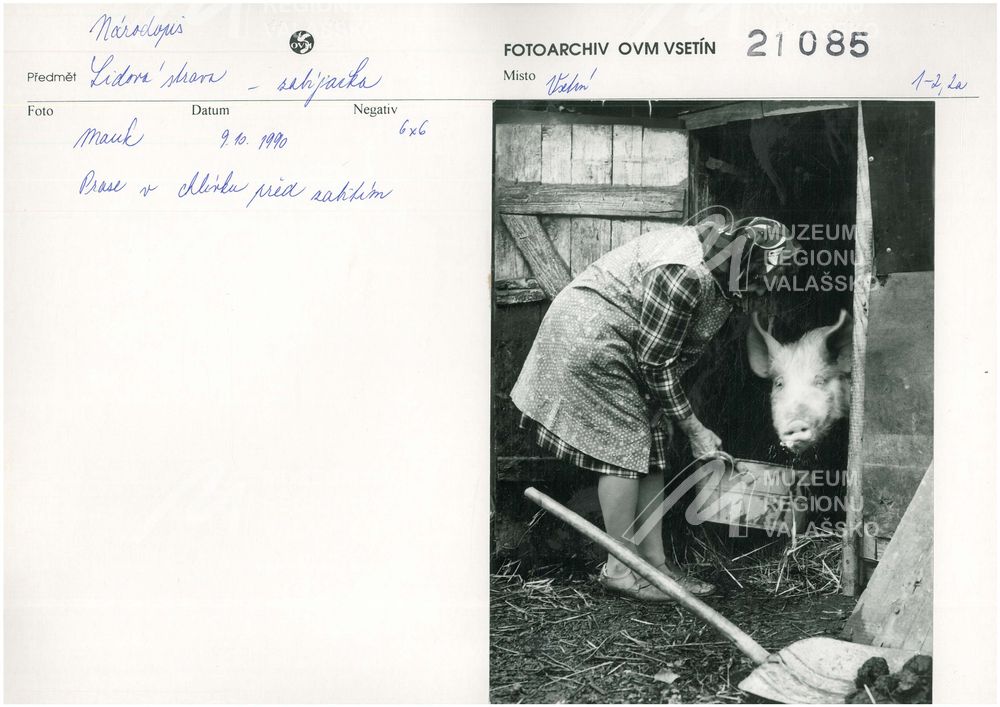 Národopis
OVM
FOTOARCHIV OVM VSETÍN 21085
Předmět Lidová strava - zabijačka
Místo Vsetín 1-2, 2a
Foto Datum Negativ
9.10. 1990 6x6
Prase v chlívku před zabitím
MUZEUM
REGIONU
VALAŠSKO
MUZEUM
REGIONU
VALAŠSKO